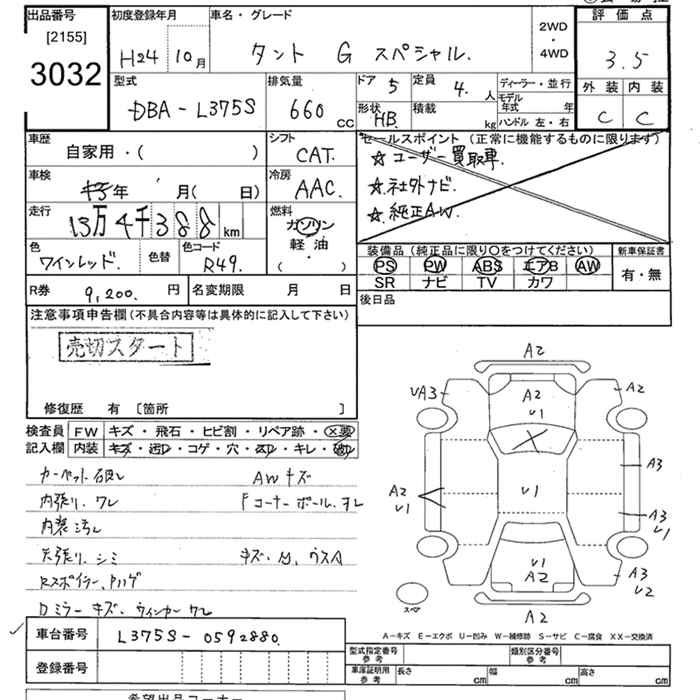 出品番号
[2155]
3032
初度登録年月
H24 10月
車名・グレード
タント G スペシャル.
2WD
・
4WD
評価点
3.5
外装 内装
C C
型式
DBA-L375S
排気量
660 CC
ドア 5
定員 4. 人
形状 HB.
積載 kg
ディーラー・並行
モデル年式 年
ハンドル 左・右
車歴
自家用・( )
シフト
CAT.
車検
年 月( 日)
冷房
AAC.
走行
13万4千388 km
燃料
ガソリン
軽油
・
( )
色
ワインレッド.
色替
色コード
R49.
R券 9,200. 円
名変期限 月 日
セールスポイント (正常に機能するものに限ります)
☆ユーザー買取車
☆社外ナビ.
☆純正AW.
装備品 (純正品に限り○をつけてください)
PS PW ABS エアB AW
SR ナビ TV カワ
新車保証書
有・無
後日品
注意事項申告欄 (不具合内容等は具体的に記入して下さい)
売切スタート
修復歴 有 〔箇所 〕
検査員記入欄
FW キズ・飛石・ヒビ割・リペア跡・X要
内装 キズ・汚レ・コゲ・穴・スレ・キレ・
カーペット
AWキズ
内張リ. ワレ
Fコーナーポール.オレ
内装汚レ
天張リ. シミ
キズ.
RスポイラーハゲDミラーキズ. ウィンカーワレ
A2
UA3
A2
A2
U1
A3
A2
U1
U1
A3
U1
U1
A2
A3
U2
A2
スペア
A-キズ E-エクボ U-凹み W-補修跡 S-サビ C-腐食 XX-交換済
車台番号
L375S-0592880.
登録番号
型式指定番号
参考
類別区分番号
参考
車庫証明用
参考
長さ cm
幅 cm
高さ cm
希望出品コーナー